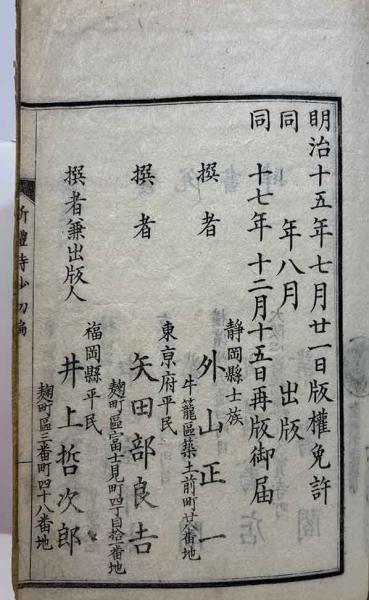 明治十五年七月廿一日版權免許
同 年八月 出版
同 十七年十二月十五日再版御届
靜岡縣士族
撰者 外山正一
牛籠區築土前町廿八番地
東京府平民
撰者 矢田部良吉
麹町區富士見町四丁目拾一番地
福岡縣平民
撰者兼出版人 井上哲次郎
麹町區三番町四十八番地
新體詩抄初編